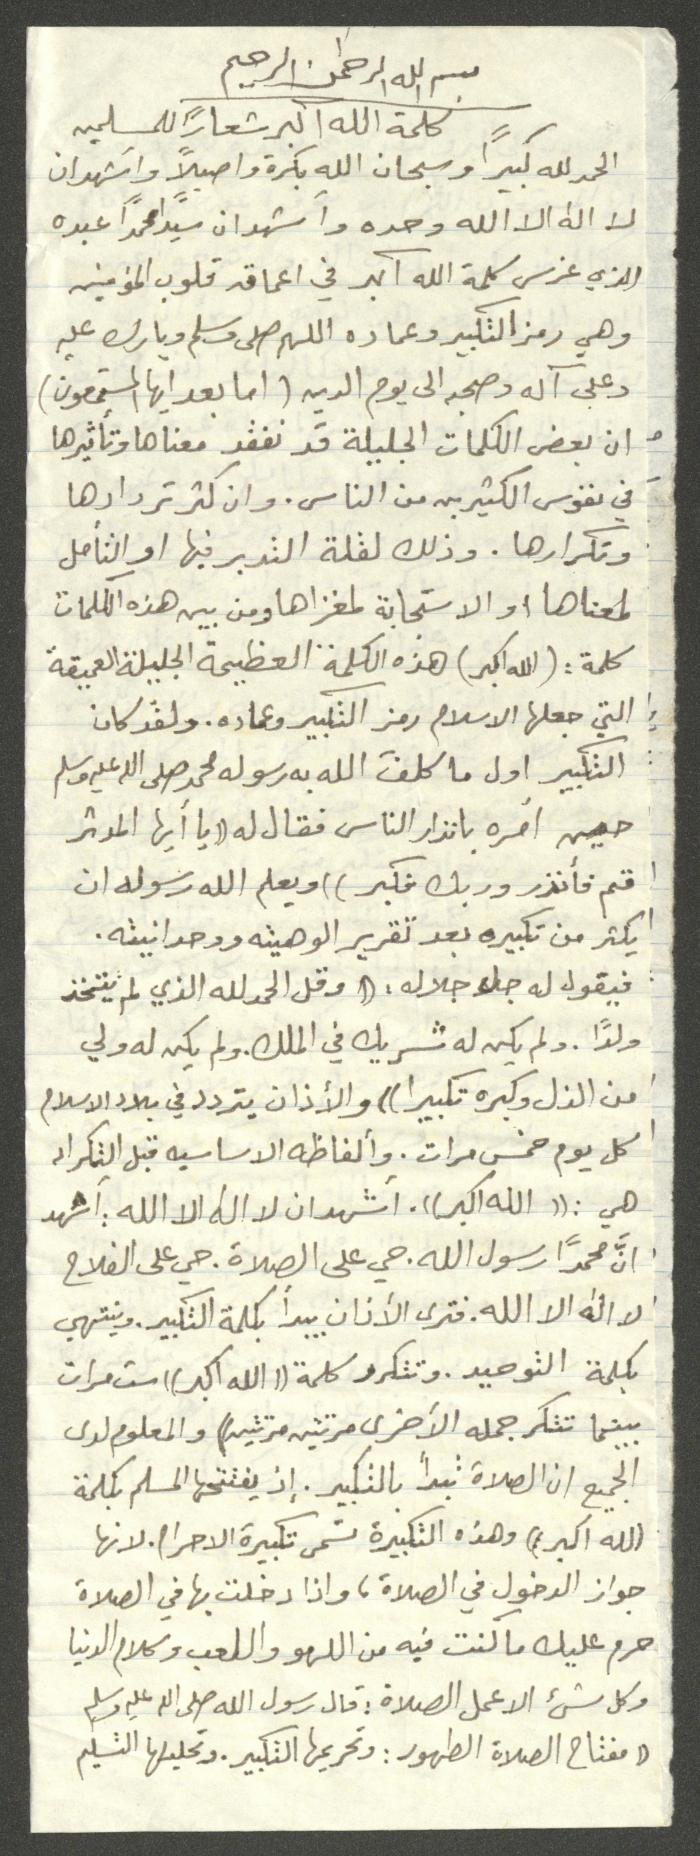 بسم الله الرحمن الرحيم
كلمة الله اكبر شعارًا للمسلمين
الحمد لله كبيرًا وسبحان الله بكرة واصيلًا واشهد ان
لا اله الا الله وحده وأشهد ان سيدًا محمدًا عبده
الذي غرس كلمة الله اكبر في اعماق قلوب المؤمنين
وهي رمز التكبير وعماده اللهم صلى وسلم وبارك عليه
وعلى آله وصحبه الى يوم الدين (اما بعد ايها المستمعون)
ان بعض الكلمات الجليلة قد تفقد معناها وتأثيرها
في نفوس الكثيرين من الناس. وان كثر تردادها
وتكرارها. وذلك لقلة التدبر فيها او التأمل
لمعناها او الاستجابة لمغزاها ومن بين هذه الكلمات
كلمة: (الله اكبر) هذه الكلمة العظيمة الجليلة العميقة
التي جعلها الاسلام رمز التكبير وعماده. ولقد كان
التكبير اول ما كلف الله به رسوله محمد صلى الله عليه وسلم
حين أمره بانذار الناس فقال له ((يا أيها المدثر
قم فأنذر وربك فكبر)) ويعلم الله رسوله ان
يكثر من تكبيره بعد تقرير الوهيته ووحدانيته.
فيقول له جل جلاله: ((وقل الحمد لله الذي لم يتخذ
ولدًا. ولم يكن له شريك في الملك. ولم يكن له ولي
من الذل وكبره تكبيرا)) والأذان يتردد في بلاد الاسلام
كل يوم خمس مرات. وألفاظه الاساسيه قبل التكرار
هي: ((الله اكبر)). أشهد ان لا اله الا الله: أشهد
انَّ محمدًا رسول الله. حي على الصلاة. حي على الفلاح
لا اله الا الله. فترى الأذان يبدأ بكلمة التكبير. وينتهي
بكلمة التوحيد. وتتكرر كلمة ((الله اكبر)) ست مرات
بينما تتكر جمله الأخرى مرتين مرتين) والمعلوم لدى
الجميع ان الصلاة تبدأ بالتكبير. إذ يفتتحها المسلم بكلمة
(الله اكبر:) وهذه التكبيرة تسمى تكبيرة الاحرام. لانها
جواز الدخول في الصلاة، واذا دخلت بها في الصلاة
حرم عليك ما كنت فيه من اللهو واللعب وكلام الدنيا
وكل شئ الا عمل الصلاة: قال رسول الله صلى الله عليه وسلم
((مفتاح الصلاة الطهور: وتحريمها التكبير. وتحليلها التسليم